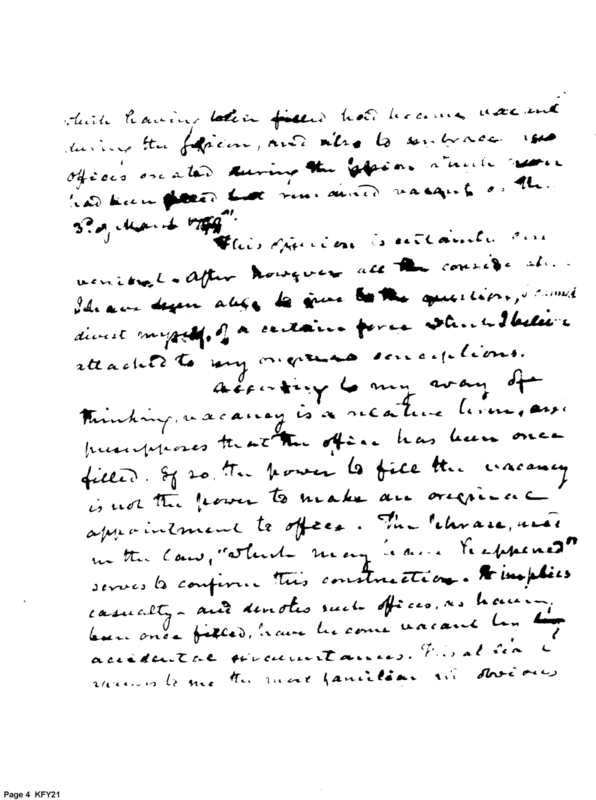 which having been filled had become vacant
during the session, and also to embrace
offices created during the session which
had been filled but remained vacant on the
3d. of March
This opinion is certainly
venient. After however all the consideration
I have been able to give to the question, I cannot
divest myself of a certain force which I believe
attached to my original conceptions.
According to my way of
thinking, vacancy is a relative term, and
presupposes that the office has been once
filled. If so, the power to fill the vacancy
is not the power to make an original
appointment to office. The Phrase, used
in the law, "which may have happened"
serves to confirm this construction. It implies
casualty - and denotes such offices, as having
been once filled, have become vacant by
accidental circumstances. This at least
seems to me the most familiar and obvious
Page 4 KFY21